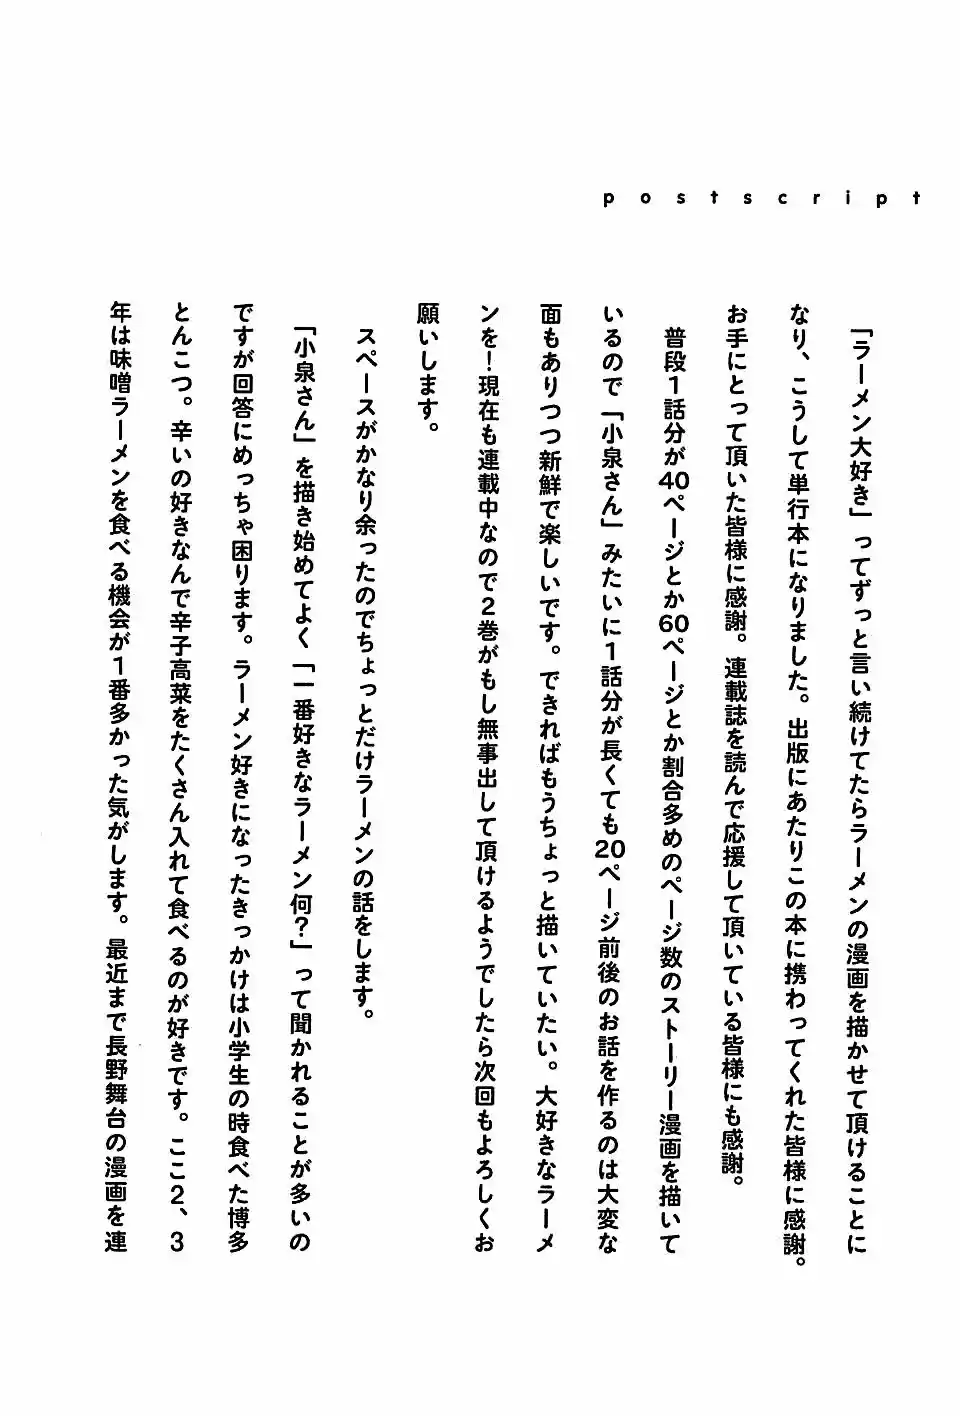 postscript
「ラーメン大好き」ってずっと言い続けてたらラーメンの漫画を描かせて頂けることに
なり、こうして単行本になりました。出版にあたりこの本に携わってくれた皆様に感謝。
お手にとって頂いた皆様に感謝。連載誌を読んで応援して頂いている皆様にも感謝。
普段1話分が40ページとか60ページとか割合多めのページ数のストーリー漫画を描いて
いるので「小泉さん」みたいに1話分が長くても20ページ前後のお話を作るのは大変な
面もありつつ新鮮で楽しいです。できればもうちょっと描いていたい。大好きなラーメ
ンを！現在も連載中なので2巻がもし無事出して頂けるようでしたら次回もよろしくお
願いします。
スペースがかなり余ったのでちょっとだけラーメンの話をします。
「小泉さん」を描き始めてよく「一番好きなラーメン何？」って聞かれることが多いの
ですが回答にめっちゃ困ります。ラーメン好きになったきっかけは小学生の時食べた博多
とんこつ。辛いの好きなんで辛子高菜をたくさん入れて食べるのが好きです。ここ2、3
年は味噌ラーメンを食べる機会が1番多かった気がします。最近まで長野舞台の漫画を連